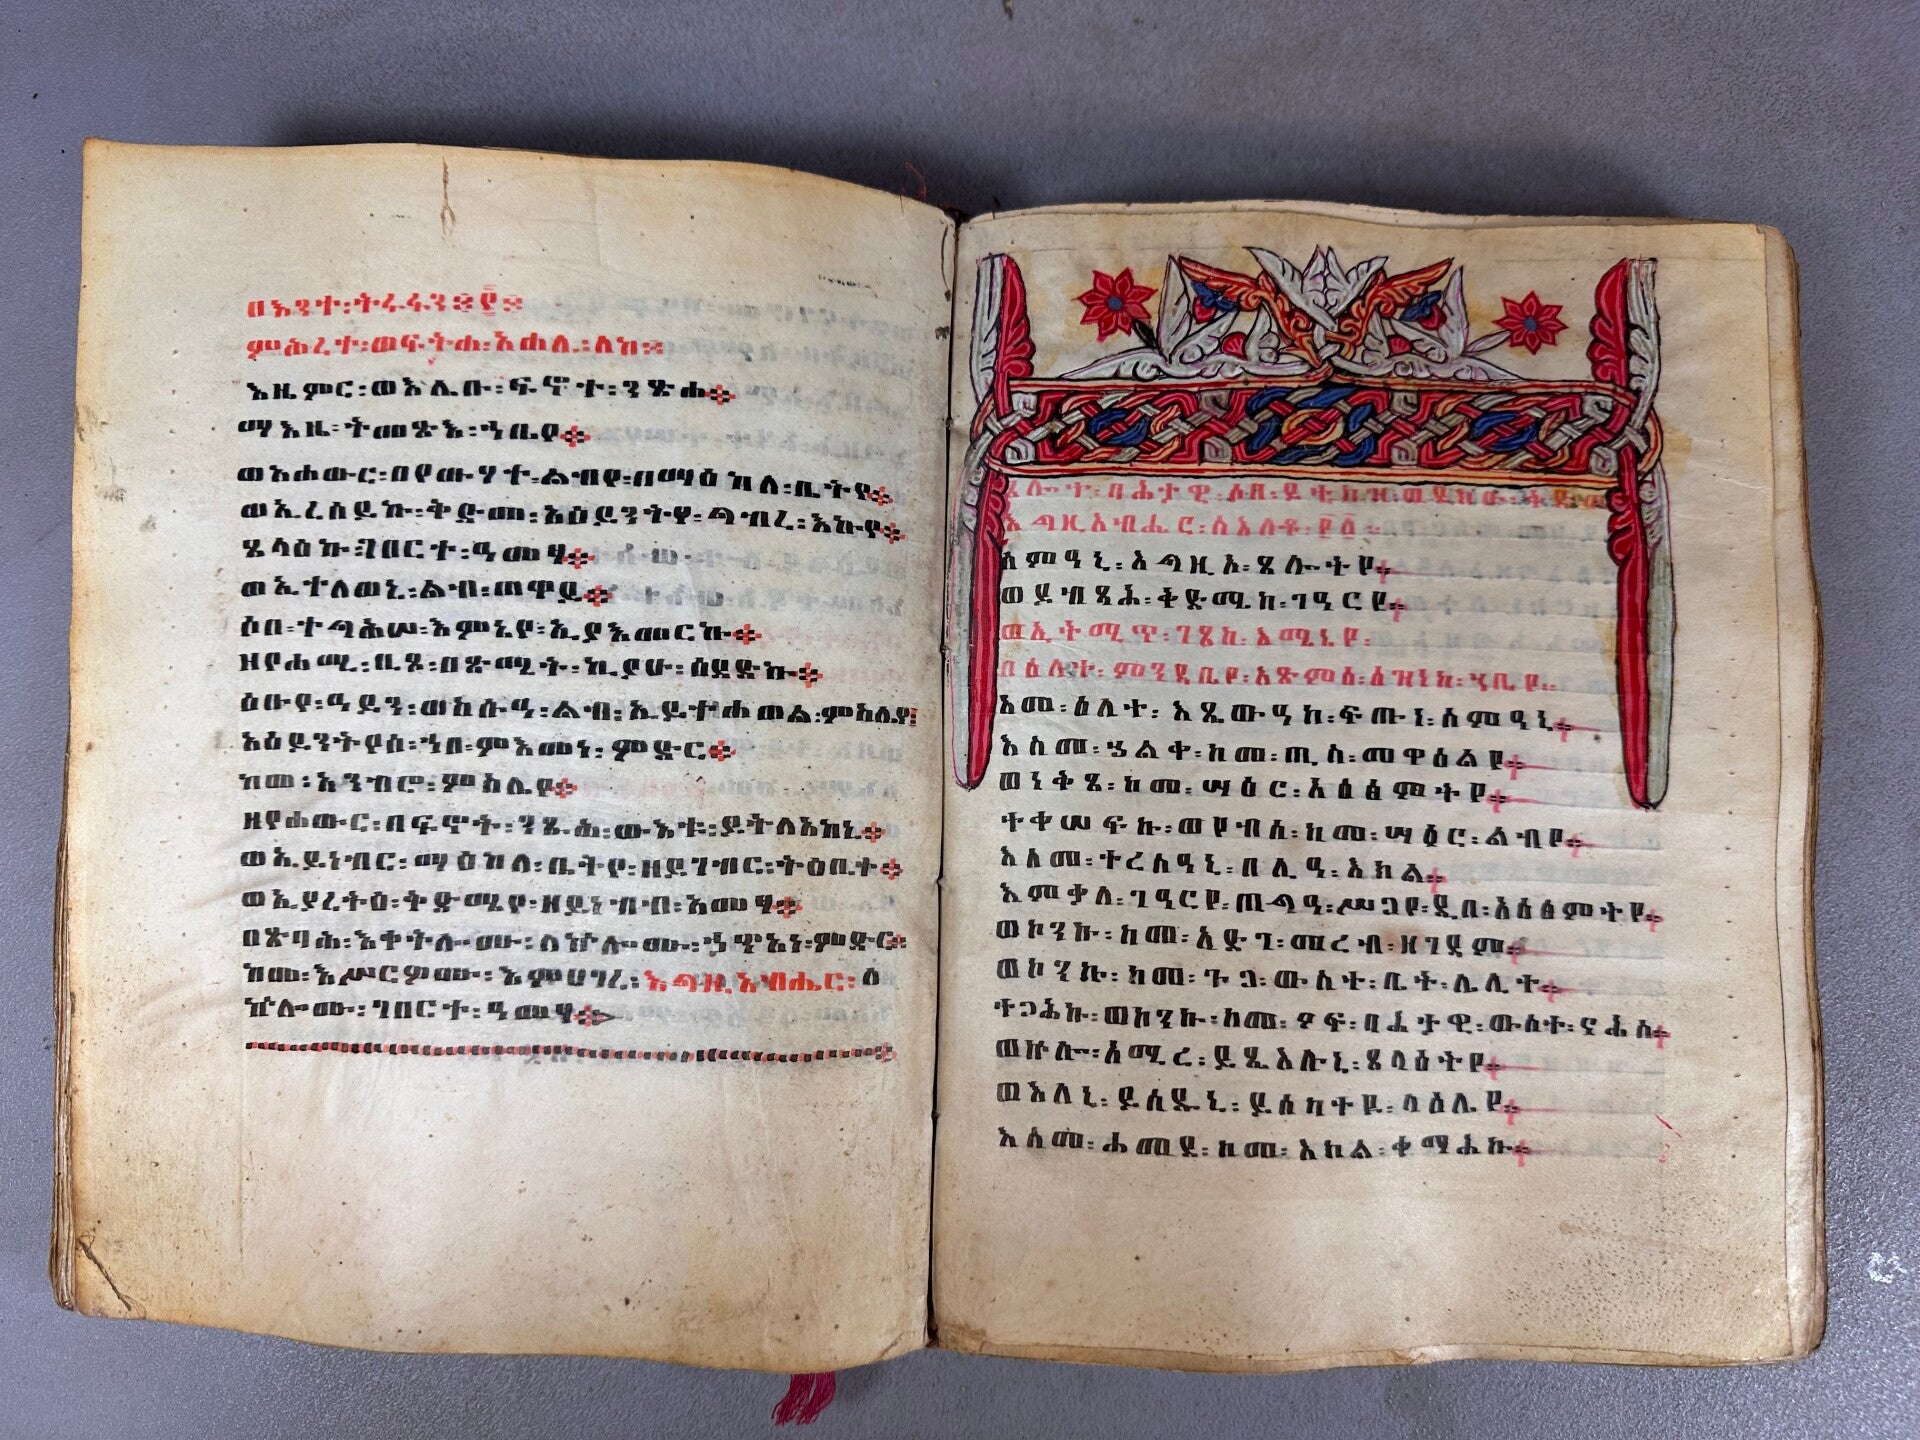 በእንተ፡ትሩፋን፡፻፡
ምሕረተ፡ወፍትሐ፡አሐሊ፡ለከ።
እዜምር፡ወእሌቡ፡ፍኖተ፡ንጹሐ።
ማእዜ፡ትመጽእ፡ኀቤየ።
ወአሐውር፡በየውሃተ፡ልብየ፡በማዕከለ፡ቤትየ።
ወኢረሰይኩ፡ቅድመ፡አዕይንትየ፡ግብረ፡እኩየ።
ጸላዕኩ፡ገበርተ፡ዓመፃ።
ወኢተለወኒ፡ልብ፡ጠዋይ።
ሶበ፡ተግሕሠ፡እምኔየ፡ኢያእመርኩ።
ዘየሐሚ፡ቢጾ፡በጽሚት፡ኪያሁ፡ሰደድኩ።
ዕቡየ፡ዓይን፡ወስሱዓ፡ልብ፡ኢይትሐወል፡ምስሌየ።
አዕይንትየሰ፡ኀበ፡ምእመነ፡ምድር።
ከመ፡አንብሮ፡ምስሌየ።
ዘየሐውር፡በፍኖት፡ንጹሕ፡ውእቱ፡ይትለአከኒ።
ወኢይነብር፡ማዕከለ፡ቤትየ፡ዘይገብር፡ትዕቢተ።
ወኢያረትዕ፡ቅድሜየ፡ዘይነብብ፡አመፃ።
በጽባሕ፡እቀትሎሙ፡ለኵሎሙ፡ኃጥአነ፡ምድር።
ከመ፡አሥርዎሙ፡እምሀገረ፡እግዚአብሔር፡ለ
ኵሎሙ፡ገበርተ፡ዓመፃ።
ጸሎተ፡በሕታዊ፡ሶበ፡ይቴክዝ፡ወይክዑ፡ቅድመ
እግዚአብሔር፡ስእለቶ፡፻፩።
ስምዓኒ፡እግዚኦ፡ጸሎትየ።
ወይብጻሕ፡ቅድሜከ፡ገዓርየ።
ወኢትሚጥ፡ገጸከ፡እምኔየ፡
በዕለተ፡ምንዳቤየ፡አጽምዕ፡ዕዝነከ፡ኀቤየ።
አመ፡ዕለተ፡እጼውዓከ፡ፍጡነ፡ስምዓኒ።
እስመ፡ኃልቀ፡ከመ፡ጢስ፡መዋዕልየ።
ወነቅጸ፡ከመ፡ሣዕር፡አዕፅምትየ።
ተቀሠፍኩ፡ወየብሰ፡ከመ፡ሣዕር፡ልብየ።
እስመ፡ተረስዓኒ፡በሊዓ፡እክል።
እምቃለ፡ገዓርየ፡ጠግዓ፡ሥጋየ፡ዲበ፡አዕፅምትየ።
ወኮንኩ፡ከመ፡አድገ፡መረብ፡ዘገዳም።
ወኮንኩ፡ከመ፡ጉጋ፡ውስተ፡ቤት፡ሌሊተ።
ተጋሕኩ፡ወኮንኩ፡ከመ፡ዖፍ፡በሕታዊ፡ውስተ፡ናሕስ።
ወኵሎ፡አሚረ፡ይጼእሉኒ፡ጸላዕትየ።
ወእለኒ፡ይሴብሑኒ፡ይሰከተዩ፡ላዕሌየ።
እስመ፡ሐመደ፡ከመ፡እክል፡ቀማሕኩ።